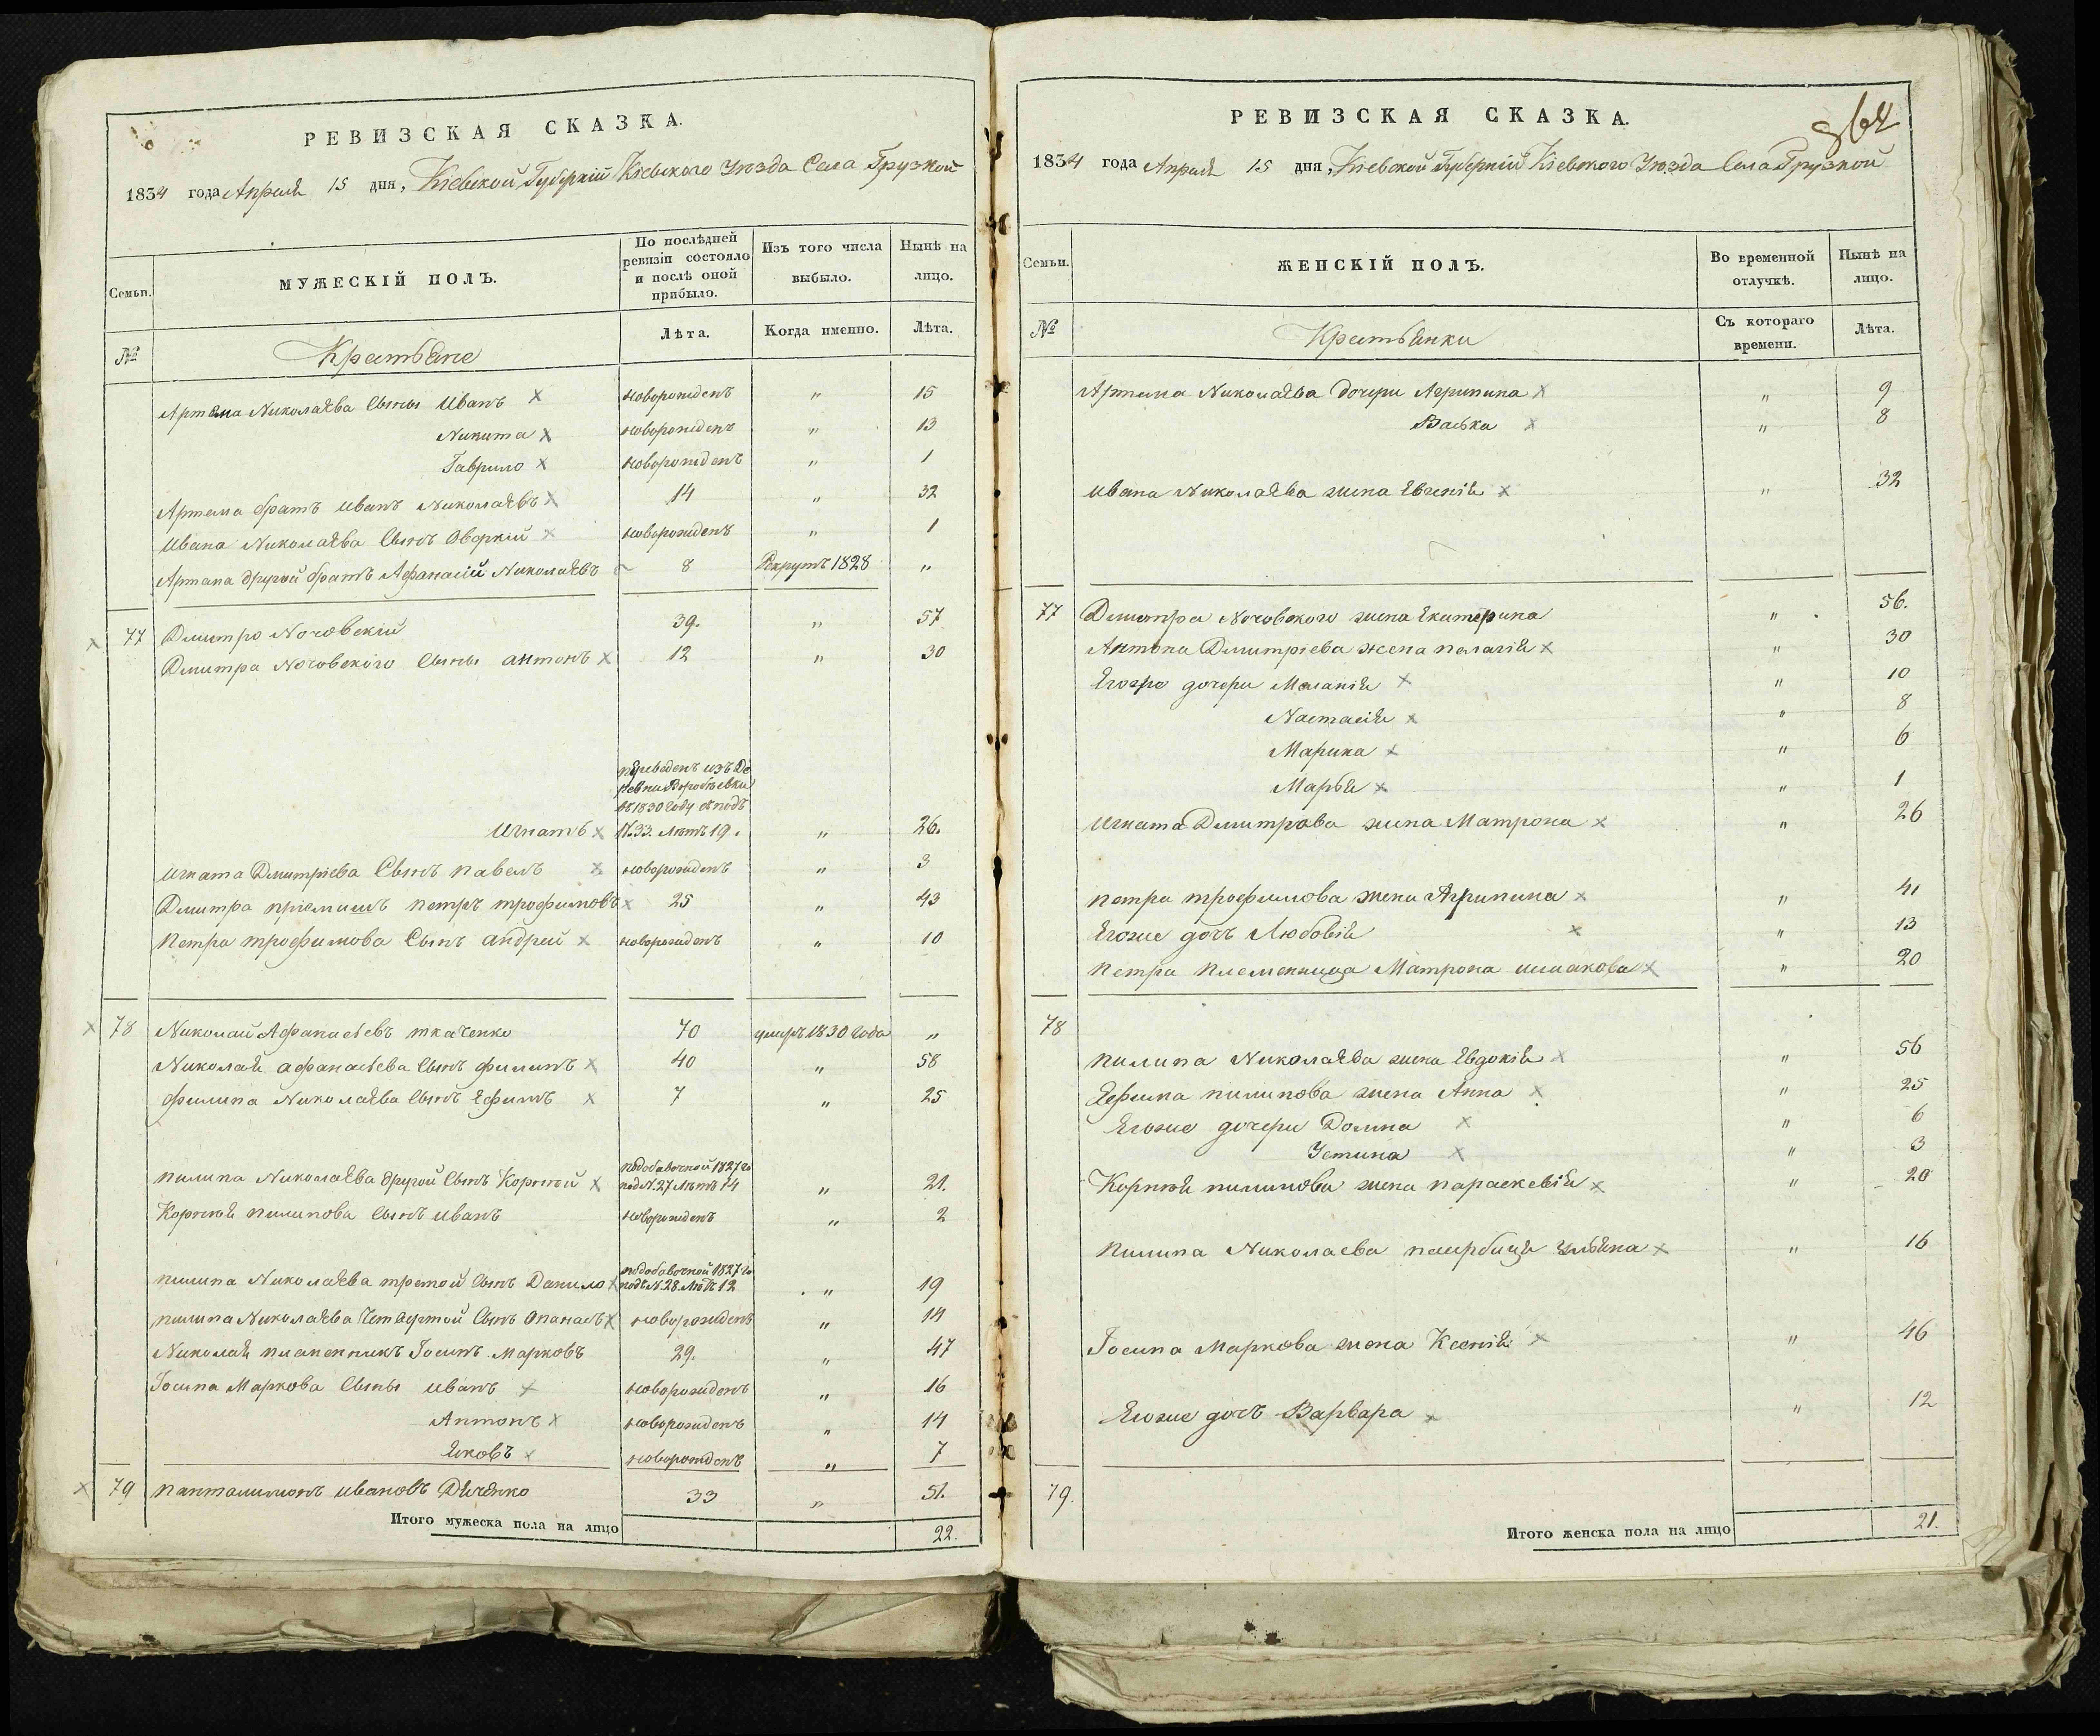 РЕВИЗСКАЯ СКАЗКА.
1834 года Апреля 15 дня, Кіевской Губерніи Кіевского Уѣзда Села Грузкой
Семьи.
МУЖЕСКІЙ ПОЛЪ.
По послѣдней ревизіи состояло и послѣ оной прибыло.
Изъ того числа выбыло.
Нынѣ на лицо.
№
Крестьяне
Лѣта.
Когда именно.
Лѣта.
Артема Николаева Сыны Иванъ х новорожденъ " 15
Никита х новорожденъ " 13
Гаврило х новорожденъ " 1
Артема братъ иванъ Николаевъ х 14 " 32
Ивана Николаева Сынъ х новорожденъ " 1
Артема другой братъ Афанасій Николаевъ 8 Рекрутъ 1828 "
х 77 Дмитро 39. " 57
Дмитра Сыны антонъ х 12 " 30
переведенъ изъ Де
ревни Воробьевки
въ 1830 году подъ
Игнатъ х №.33. Лѣтъ 19. " 26.
Игната Дмитріева Сынъ павелъ х новорожденъ " 3
Дмитра пріемишъ петръ трофимовъ х 25 " 43
Петра трофимова Сынъ андрей х новорожденъ " 10
х 78 Николай Афанасьевъ ткаченко 70 умеръ 1830 Года "
Николая афанасьева Сынъ филипъ х 40 " 58
филипа Николаева Сынъ Ефимъ х 7 " 25
подобавочной 1827 го
пилипа Николаева другой Сынъ Корней х под N.27 Лѣтъ 14 " 21.
Корнея пилипова Сынъ иванъ новорожденъ " 2
подобавочной 1827 го
пилипа Николаева третой Сынъ Данило х подъ N.28 Лѣтъ 12 " 19
пилипа Николаева Четвертой Сынъ Опанасъ х новорожденъ " 14
Николая племенникъ Іосипъ Марковъ 29. " 47
Іосипа Маркова Сыны иванъ х новорожденъ " 16
Антонъ х новорожденъ " 14
Яковъ х новорожденъ " 7
х 79 панталимонъ ивановъ Дяченко 33 " 51.
Итого мужеска пола на лицо 22.
864
РЕВИЗСКАЯ СКАЗКА.
1834 года Апреля 15 дня, Кіевской Губерніи Кіевского Уѣзда Села Грузкой
Семьи.
ЖЕНСКІЙ ПОЛЪ.
Во временной отлучкѣ.
Нынѣ на лицо.
№
Крестьянки
Съ котораго времени.
Лѣта.
Артема Николаева дочери Агрипина х " 9
Васька х " 8
Ивана Николаева жена Евгенія х " 32
77 Дмитра жена Екатерина " 56.
Антона Дмитріева жена пелагія х " 30
Его дочери Меланія х " 10
Настасія х " 8
Марина х " 6
Марья х " 1
Игната Дмитрова жена Матрона х " 26
петра трофимова жена Агрипина х " 41
Егоже дочъ Любовія х " 13
петра племенница Матрона х " 20
78
пилипа Николаева жена Евдокія х " 56
Ефима пилипова жена Анна х " 25
Егоже дочери Домна х " 6
Устина х " 3
Корнея пилипова жена параскевія х " 20
Пилипа Николаева ульяна х " 16
Іосипа Маркова жена Ксенія х " 46
Егоже дочъ Варвара х " 12
79.
Итого женска пола на лицо 21.